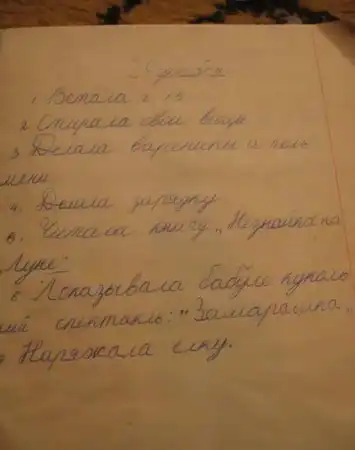 1. Встала в 15
2. Стирала свои вещи
3 Делала вареники и пель
мени
4. Делала зарядку
5. Читала книгу „Незнайка на
Луне".
6 Показывала бабуле куколь
ный спектакль: "Замарашка„
7 Наряжала елку.